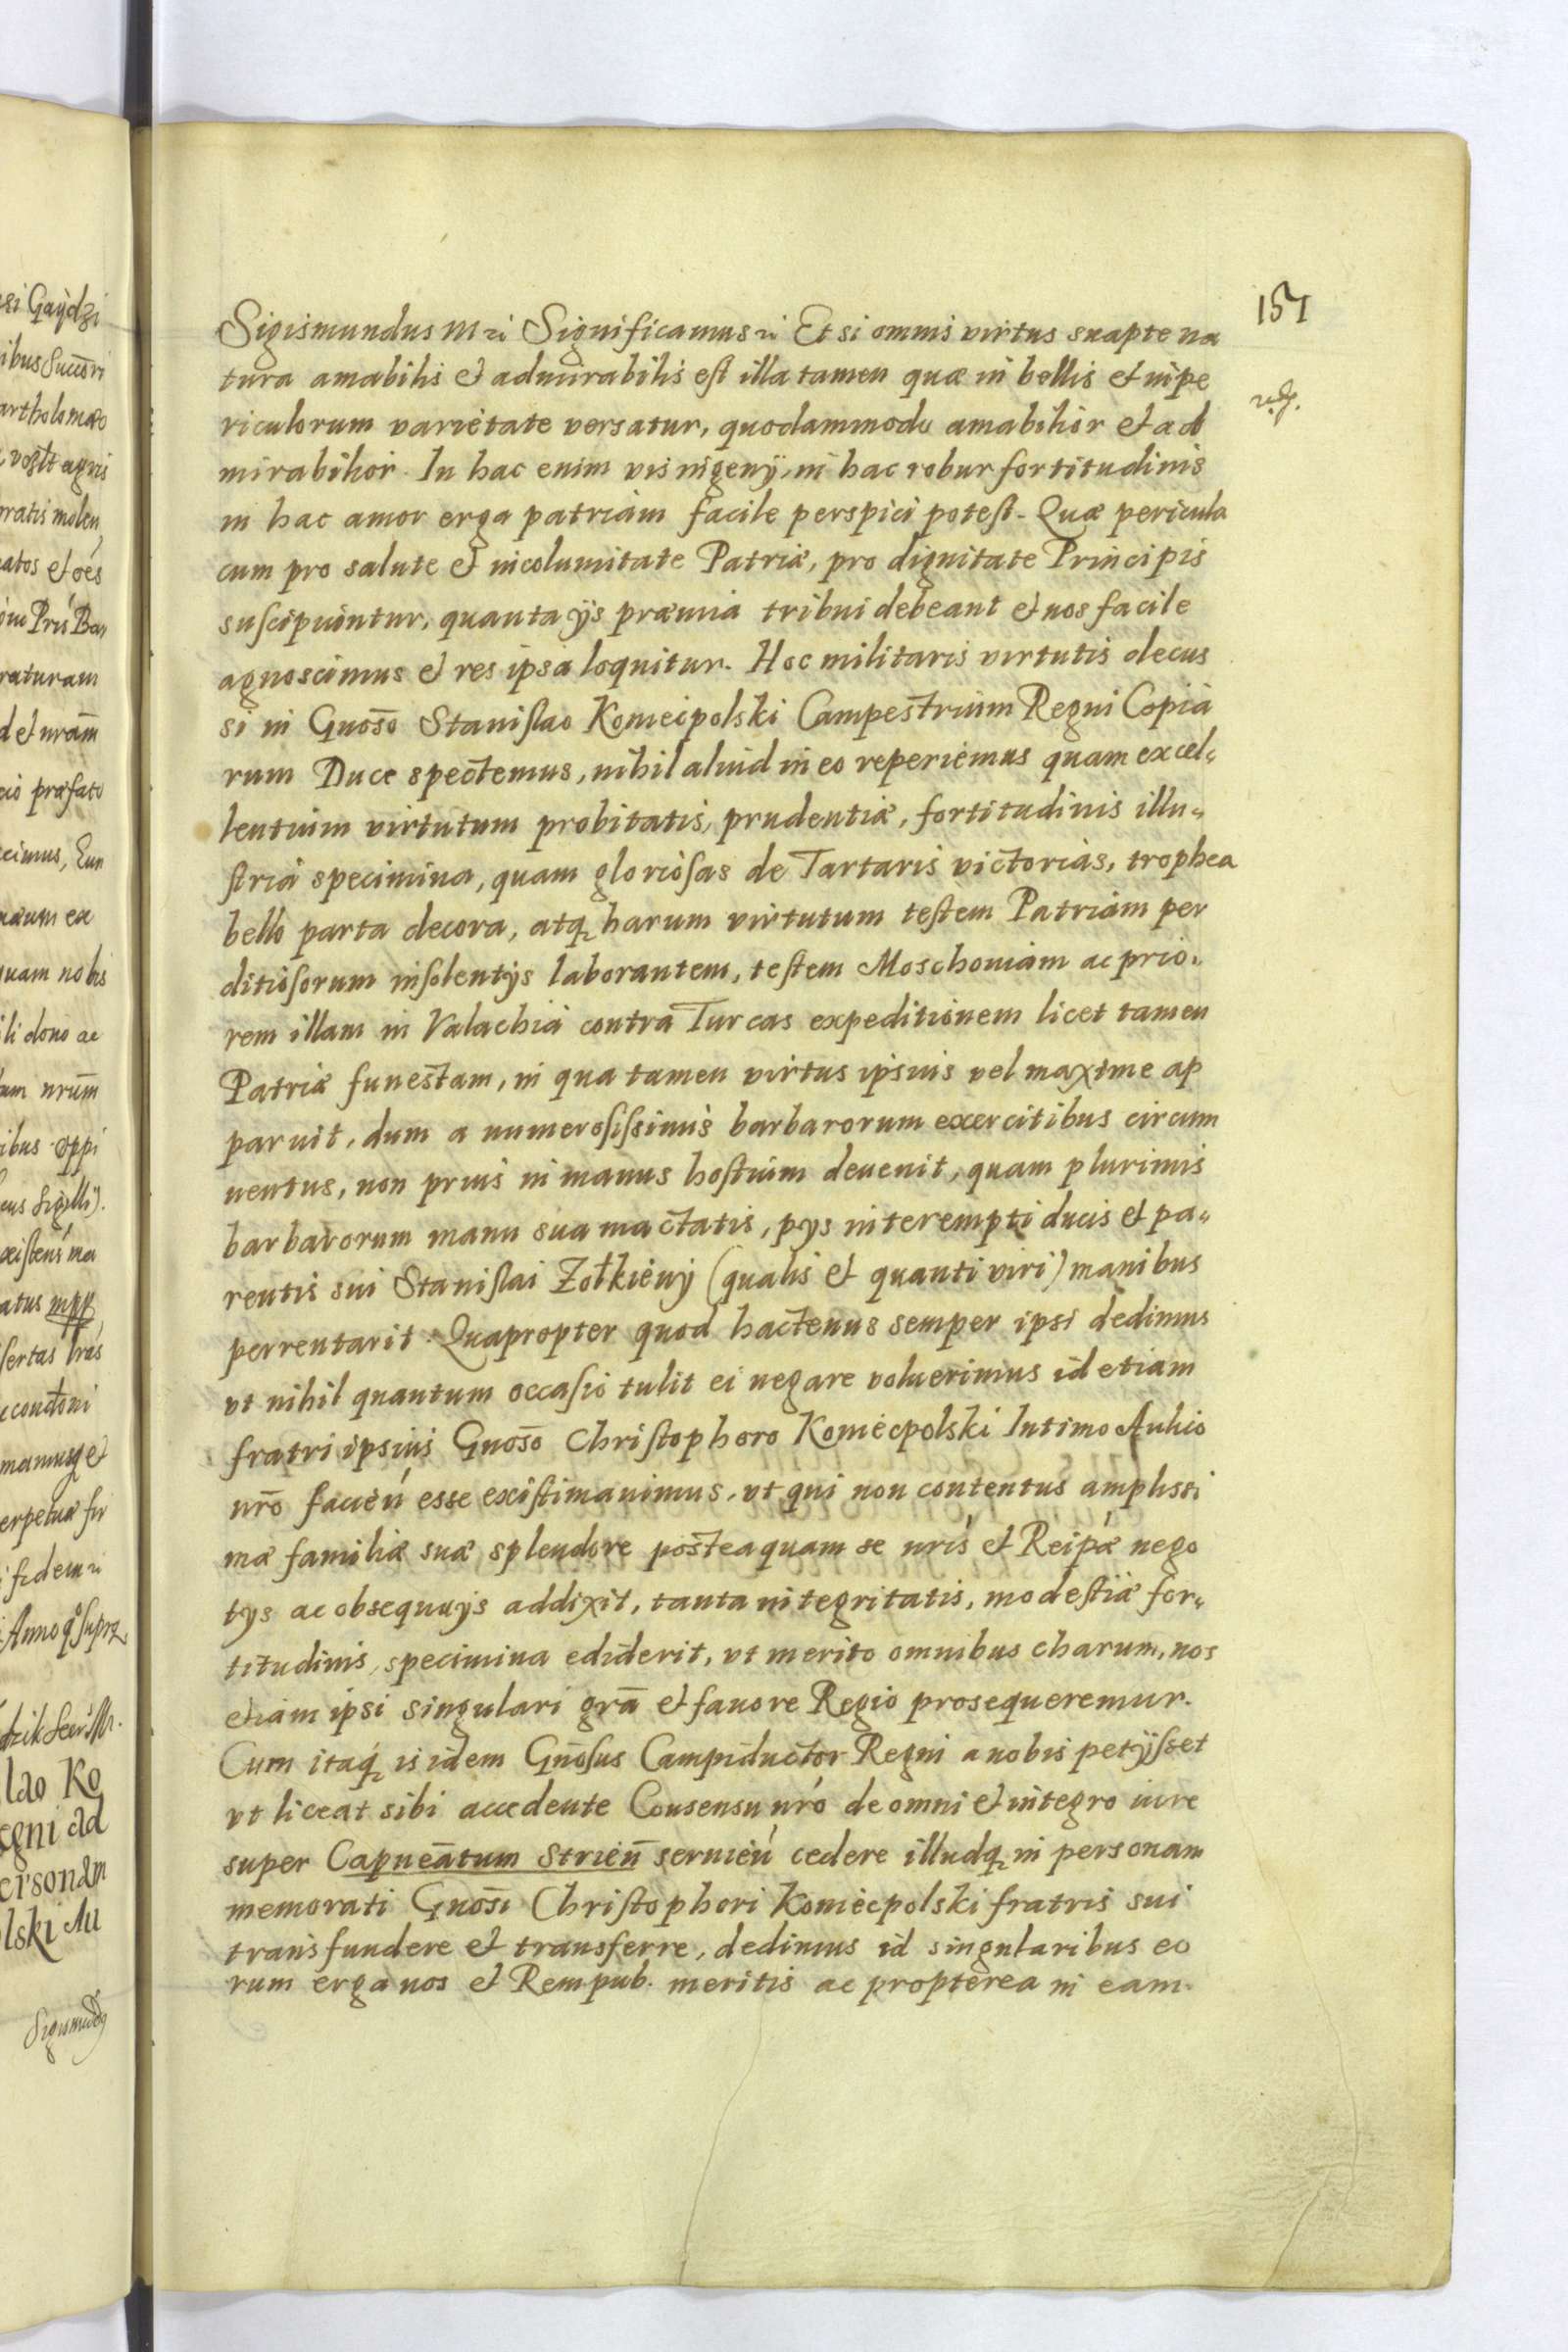 151
Sigismundus III ꝛc Significamus ꝛc Et si omnis virtus suapte na
tura amabilis et admirabilis est illa tamen quæ in bellis et in pe
riculorum varietate versatur, quodammodo amabilior et ad
mirabilior. In hac enim vis ingenÿ, in hac robur fortitudinis
in hac amor erga patriam facile perspici potest. Quæ pericula
cum pro salute et incolumitate Patriæ, pro dignitate Principis
suscipiuntur, quanta ijs præmia tribui debeant et nos facile
agnoscimus et res ipsa loquitur. Hoc militaris virtutis decus
si in Gnoso Stanislao Koniecpolski Campestrium Regni Copia
rum Duce spectemus, nihil aliud in eo reperiemus quam excel-
lentium virtutum probitatis, prudentiæ, fortitudinis illu-
stria specimina, quam gloriosas de Tartaris victorias, trophea
bello parta decora, atq harum virtutum testem Patriam per
ditiosorum insolentijs laborantem, testem Moschouiam ac prio-
rem illam in Valachia contra Turcas expeditionem licet tamen
Patriæ funestam, in qua tamen virtus ipsius vel maxime ap
paruit, dum a numerosissimis barbarorum exercitibus circum
uentus, non prius in manus hostium deuenit, quam plurimis
barbarorum manu sua mactatis, pys interempti ducis et pa-
rentis sui Stanislai Zołkieuÿ (qualis et quanti viri) manibus
perrentarit. Quapropter quod hactenus semper ipsi dedimus
vt nihil quantum occasio tulit ei negare voluerimus id etiam
fratri ipsius Gnoso Christophoro Koniecpolski Intimo Aulico
nro facień esse existimauimus, vt qui non contentus amplissi
mæ familiæ suæ splendore posteaquam se nris et Reipæ nego
tys ac obsequuys addixit, tanta integritatis, modestiæ for-
titudinis, specimina ediderit, vt merito omnibus charum, nos
etiam ipsi singulari gra et fauore Regio prosequeremur.
Cum itaq is idem Gnosus Campiductor Regni a nobis petijsset
vt liceat sibi accedente Consensu nro de omni et integro iure
super Capneatum Strien seruień cedere illudq in personam
memorati Gnosi Christophori Koniecpolski fratris sui
transfundere et transferre, dedimus id singularibus eo
rum erga nos et Rempub. meritis ac propterea in eam